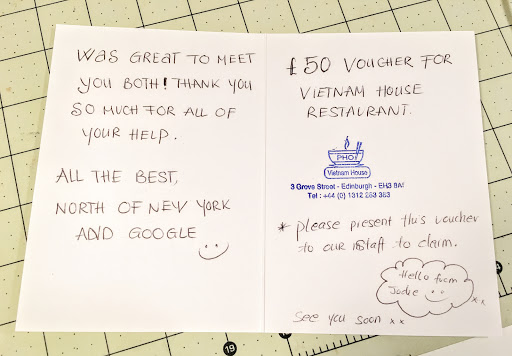 WAS GREAT TO MEET
YOU BOTH! THANK YOU
SO MUCH FOR ALL OF
YOUR HELP.
ALL THE BEST,
NORTH OF NEW YORK
AND GOOGLE
£50 VOUCHER FOR
VIETNAM HOUSE
RESTAURANT.
PHO
Vietnam House
3 Grove Street - Edinburgh - EH3 8AF
Tel : +44 (0) 1312 283 383
* please present this voucher
to our staff to claim.
Hello from
Jodie
x x
See you soon x x
19